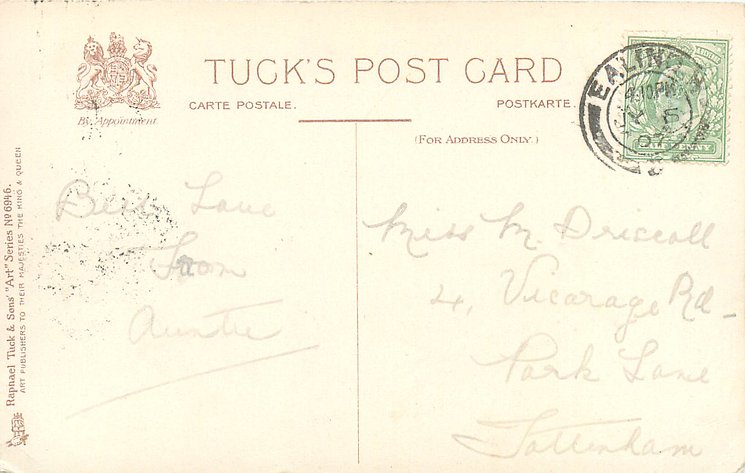 TUCK'S POST CARD
CARTE POSTALE.
POSTKARTE.
By Appointment.
(For Address Only.)
EALING
4.10PM
HALF PENNY
Best Love
From
Auntie
Miss M. Driscoll
4, Vicarage Rd-
Park Lane
Tottenham
Raphael Tuck & Sons' "Art" Series No 6946.
ART PUBLISHERS TO THEIR MAJESTIES THE KING & QUEEN